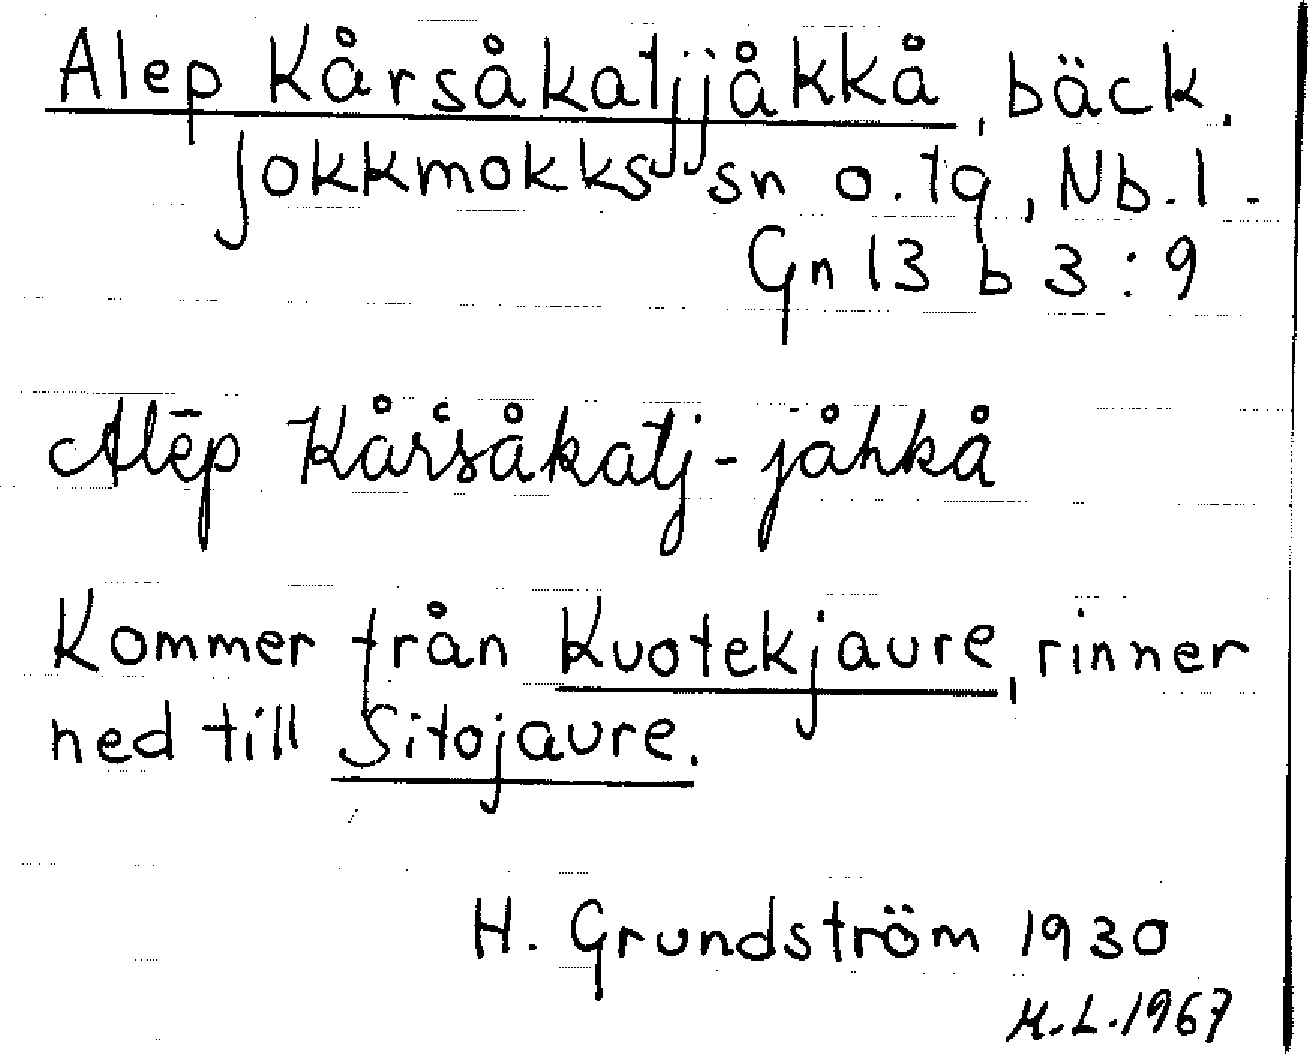 Alep Kårsåkatjjåkkå, bäck.
Jokkmokks sn o. tg, Nb. l.
Gn 13 b 3:9
Alēp Kårsåkatj-jåhkå
Kommer från Kuotekjaure, rinner
ned till Sitojaure.
H. Grundström 1930
M.L. 1967